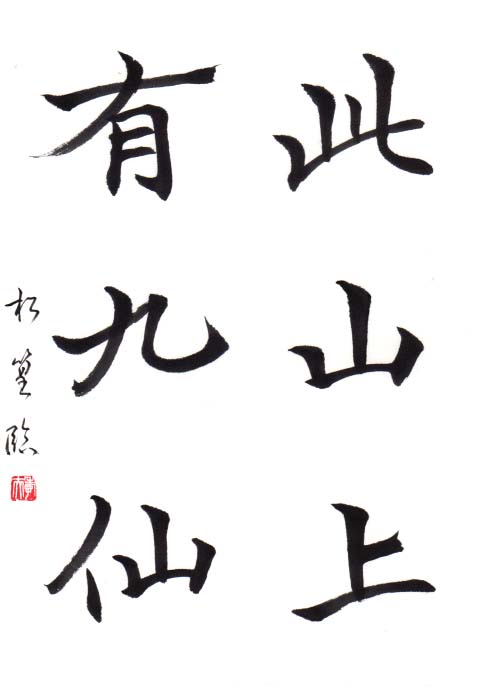 此山上
有九仙
松篁臨